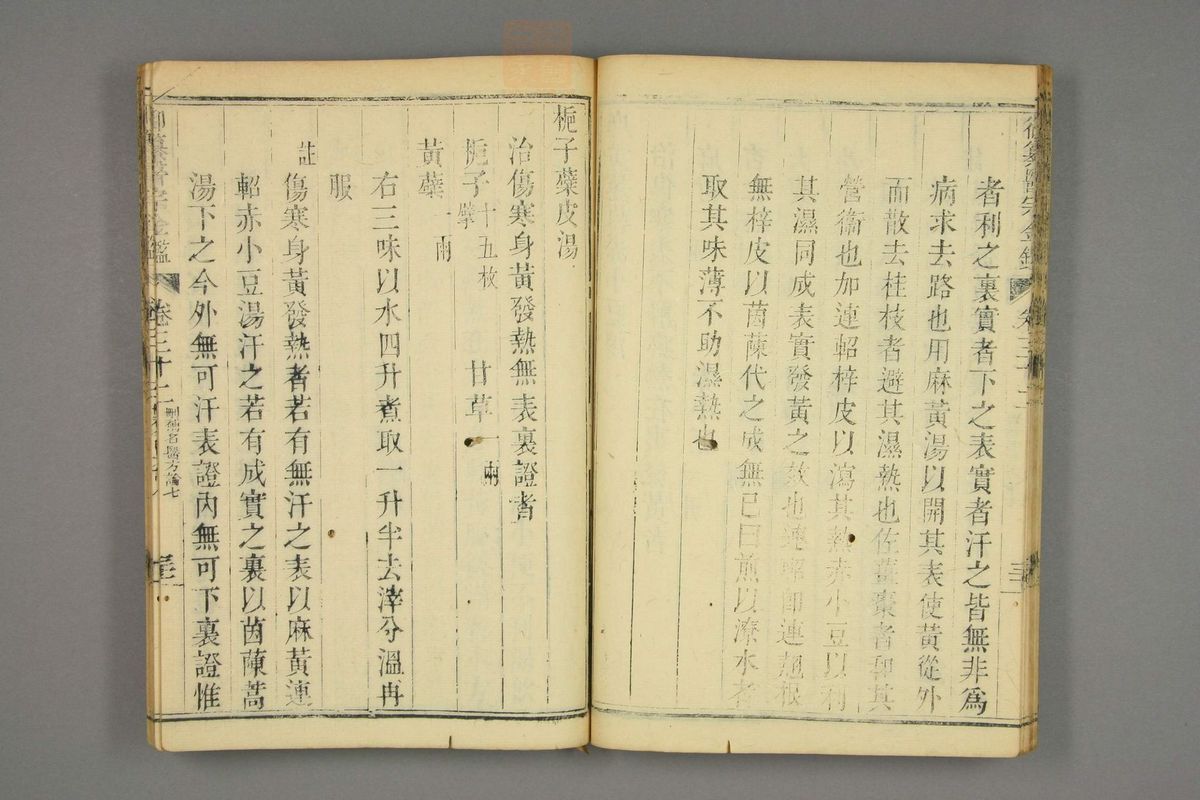 御纂醫宗金鑑
卷三十二
三二
者利之裏實者下之表實者汗之皆無非爲
病求去路也用麻黃湯以開其表使黃從外
而散去桂枝者避其濕熱也佐薑棗者和其
營衞也加連軺梓皮以瀉其熱赤小豆以利
其濕同成表實發黃之效也連軺卽連翹根
無梓皮以茵蔯代之成無已曰煎以潦水者
取其味薄不助濕熱也
梔子蘗皮湯
治傷寒身黃發熱無表裏證者
梔子十五枚擘 甘草一兩
黃蘗一兩
右三味以水四升煮取一升半去滓分溫再
服
註
傷寒身黃發熱者若有無汗之表以麻黃連
軺赤小豆湯汗之若有成實之裏以茵蔯蒿
湯下之今外無可汗表證內無可下裏證惟
御纂醫宗金鑑
卷三十二
刪補名醫方論七
三三